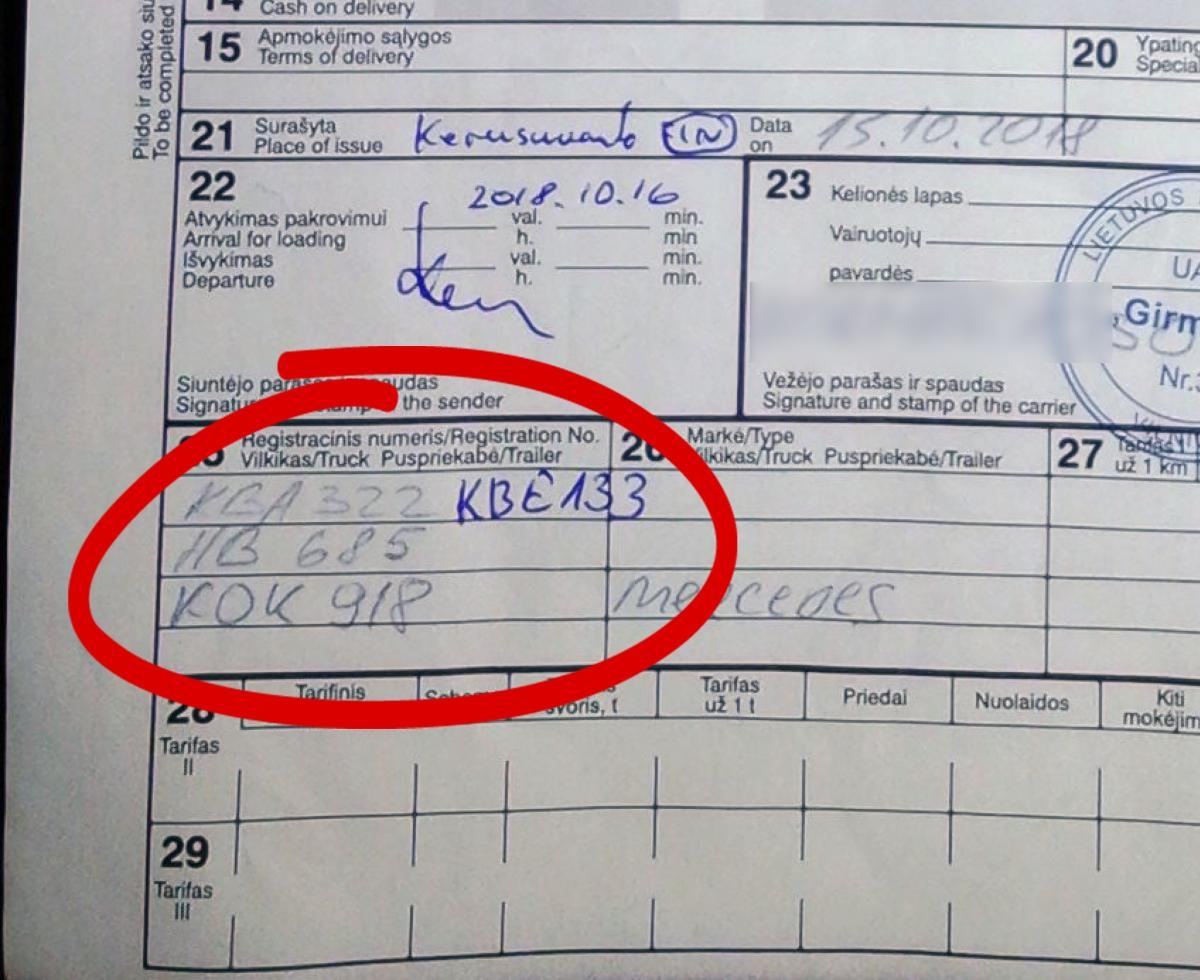 Pildo ir atsako siu
To be completed
14 Cash on delivery
15 Apmokėjimo sąlygos
Terms of delivery
20 Ypating
Special
21 Surašyta
Place of issue
(IN)
Data
on
15.10.2018
22
2018.10.16
Atvykimas pakrovimui val. min.
Arrival for loading h. min
Išvykimas val. min.
Departure h. min.
Siuntėjo udas
the sender
23 Kelionės lapas
Vairuotojų
pavardės
LIETUVOS
UA
„Girm
Nr.
Vežėjo parašas ir spaudas
Signature and stamp of the carrier
Registracinis numeris/Registration No.
Vilkikas/Truck Puspriekabė/Trailer
26 Markė/Type
Vilkikas/Truck Puspriekabė/Trailer
27
už 1 km
KBA 322 KBE133
HB 685
KOK 918 Mercedes
28
Tarifas
II
Tarifinis
svoris, t
Tarifas
už 1 t
Priedai
Nuolaidos
Kiti
mokėjim
29
Tarifas
III